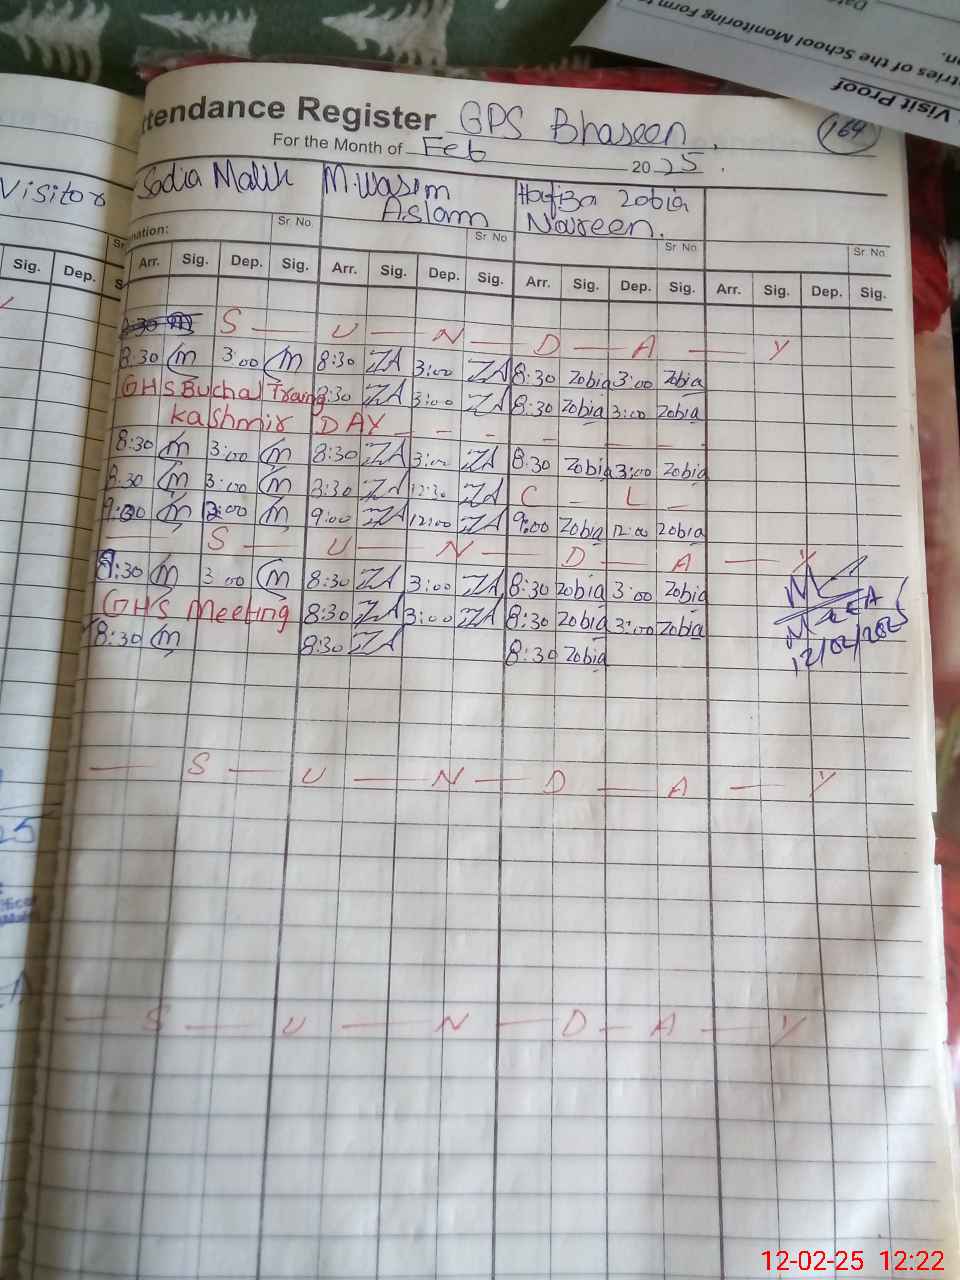 Visit Proof
ntries of the School Monitoring Form
on.
ttendance Register GPS Bhaseen.
164
For the Month of Feb 2025.
Visitor
Sadia Malik M.Wasim Hafiza Zobia
Aslam Nasreen.
nation: Sr. No Sr. No Sr. No Sr. No
Sig. Dep. S Arr. Sig. Dep. Sig. Arr. Sig. Dep. Sig. Arr. Sig. Dep. Sig. Arr. Sig. Dep. Sig.
8:30 m S — U — N — D — A — Y
8:30 m 3:00 m 8:30 ZA 3:00 ZA 8:30 Zobia 3:00 Zobia
GHS Buchal Traing 8:30 ZA 3:00 ZA 8:30 Zobia 3:00 Zobia
Kashmir DAY - - - - - - -
8:30 m 3:00 m 8:30 ZA 3:00 ZA 8:30 Zobia 3:00 Zobia
8:30 m 3:00 m 8:30 ZA 12:30 ZA C - L -
9:00 m 2:00 m 9:00 ZA 12:00 ZA 9:00 Zobia 12:00 Zobia
— S — U — N — D — A — Y
8:30 m 3:00 m 8:30 ZA 3:00 ZA 8:30 Zobia 3:00 Zobia
GHS Meeting 8:30 ZA 3:00 ZA 8:30 Zobia 3:00 Zobia
8:30 m 8:30 ZA 8:30 Zobia
MEA
12/02/2025
— S — U — N — D — A — Y
25
— S — U — N — D — A — Y
12-02-25 12:22